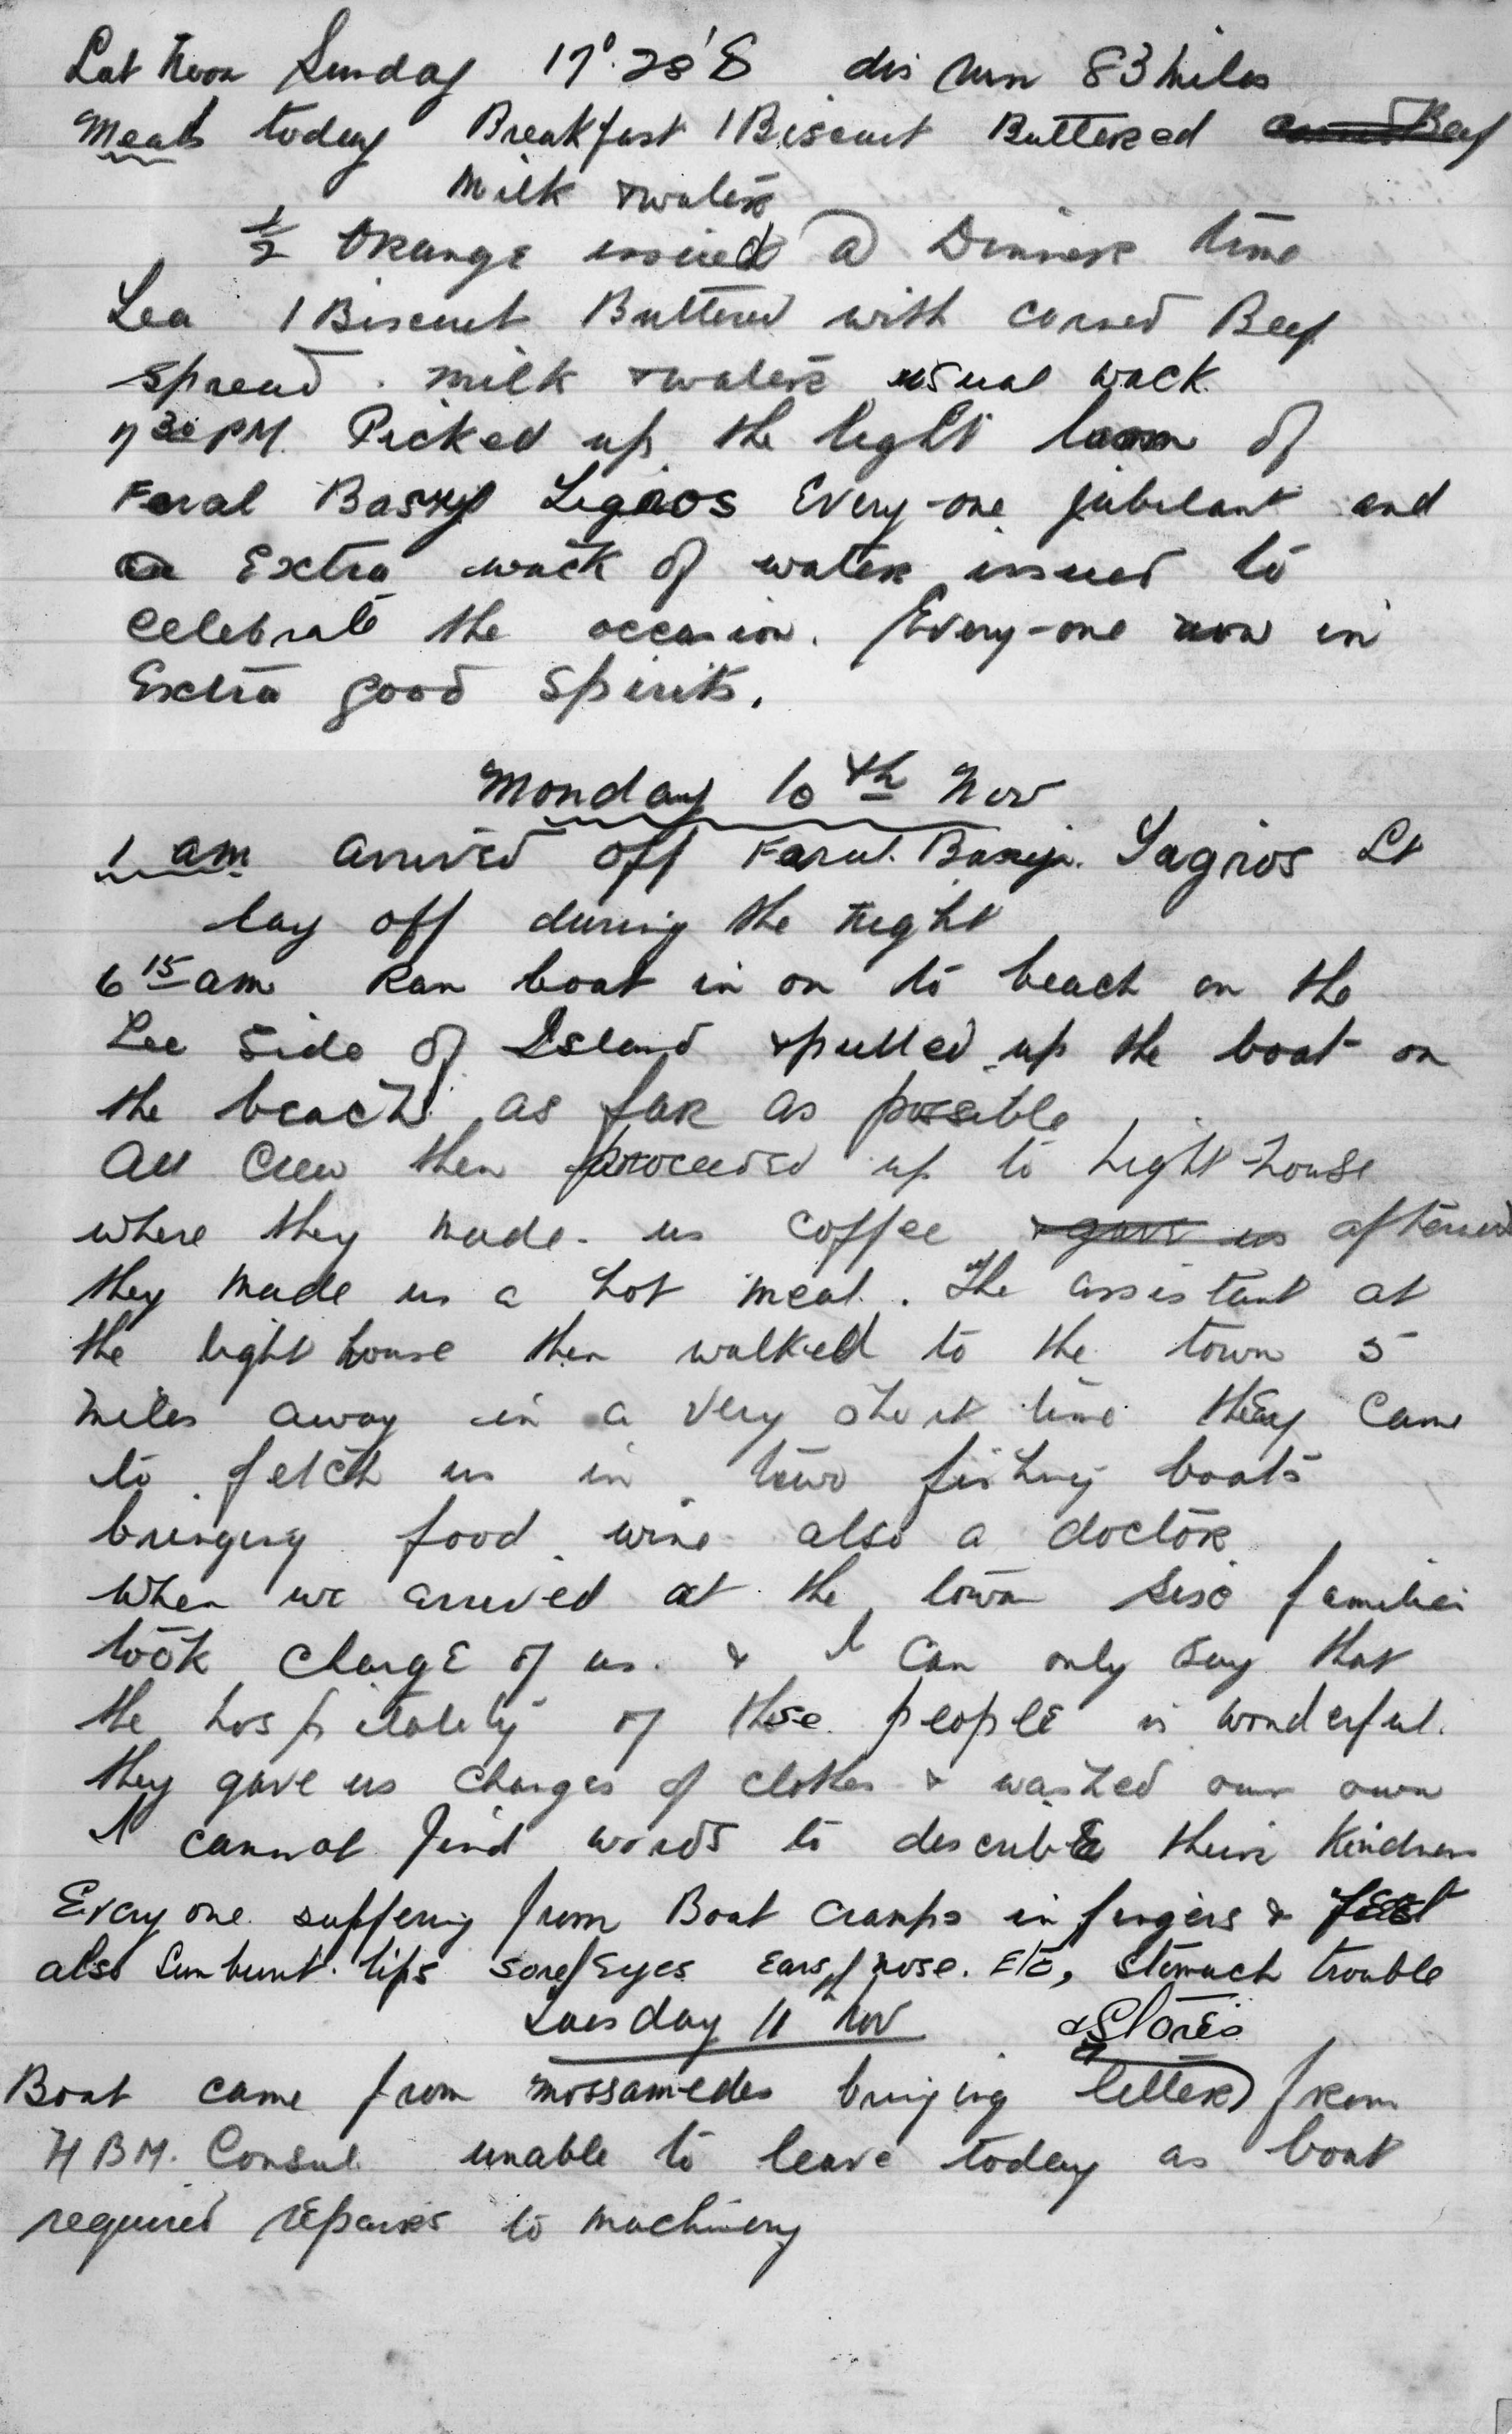 Lat Noon Sunday 17°.28'S dis run 83 miles
Meals today Breakfast 1 Biscuit Buttered corned Beef
Milk & water
½ Orange issued @ Dinner time
Tea 1 Biscuit Buttered with corned Beef
spread. milk & water usual wack.
7 30 PM. Picked up the light of
Every-one jubilant and
Extra wack of water issued to
celebrate the occasion. Every-one now in
Extra good spirits.
Monday 10th Nov
1 am arrived off Lt
lay off during the night
6 15 am Ran boat in on to beach on the
Lee side of Island & pulled up the boat on
the beach as far as possible
All Crew then proceeded up to Light-house
where they made us coffee & gave us afterward
they made us a hot meal. The assistant at
the light house then walked to the town 5
miles away in a very short time they came
to fetch us in two fishing boats
bringing food wine also a doctor
When we arrived at the town families
took charge of us. & I can only say that
the hospitality of these people is wonderful.
they gave us changes of clothes & washed our own
I cannot find words to describe their kindness
Every one suffering from Boat cramps in fingers & feet
also Sunburnt lips sore Eyes ears nose. Etc, stomach trouble
Tuesday 11th Nov & Stores
Boat came from Mossamedes bringing letter from
H B M. Consul unable to leave today as boat
required repairs to machinery